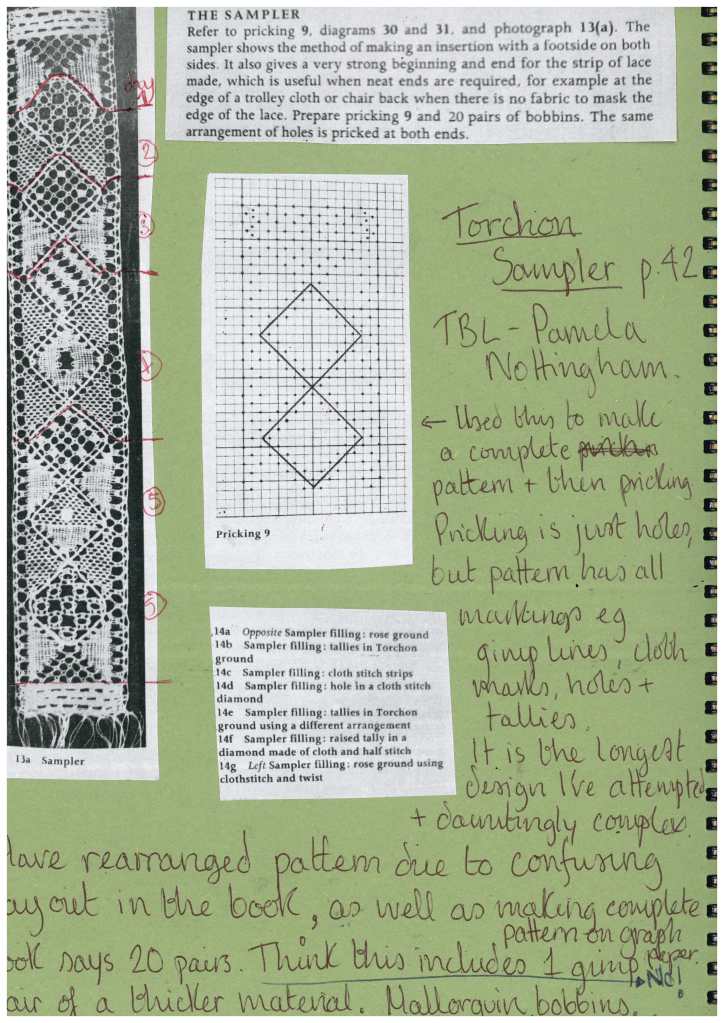 THE SAMPLER
Refer to pricking 9, diagrams 30 and 31, and photograph 13(a). The
sampler shows the method of making an insertion with a footside on both
sides. It also gives a very strong beginning and end for the strip of lace
made, which is useful when neat ends are required, for example at the
edge of a trolley cloth or chair back when there is no fabric to mask the
edge of the lace. Prepare pricking 9 and 20 pairs of bobbins. The same
arrangement of holes is pricked at both ends.
day
1
2
3
4
5
5
13a Sampler
Pricking 9
Torchon
Sampler p.42
TBL - Pamela
Nottingham.
← Used this to make
a complete
pattern + then pricking
Pricking is just holes,
but pattern has all
markings eg
gimp lines, cloth
marks, holes +
tallies.
It is the longest
design I've attempted
+ dauntingly complex.
14a Opposite Sampler filling: rose ground
14b Sampler filling: tallies in Torchon
ground
14c Sampler filling: cloth stitch strips
14d Sampler filling: hole in a cloth stitch
diamond
14e Sampler filling: tallies in Torchon
ground using a different arrangement
14f Sampler filling: raised tally in a
diamond made of cloth and half stitch
14g Left Sampler filling: rose ground using
clothstitch and twist
Have rearranged pattern due to confusing
layout in the book, as well as making complete
pattern on graph
paper.
ook says 20 pairs. Think this includes 1 gimp
No!
air of a thicker material. Mallorquin bobbins.